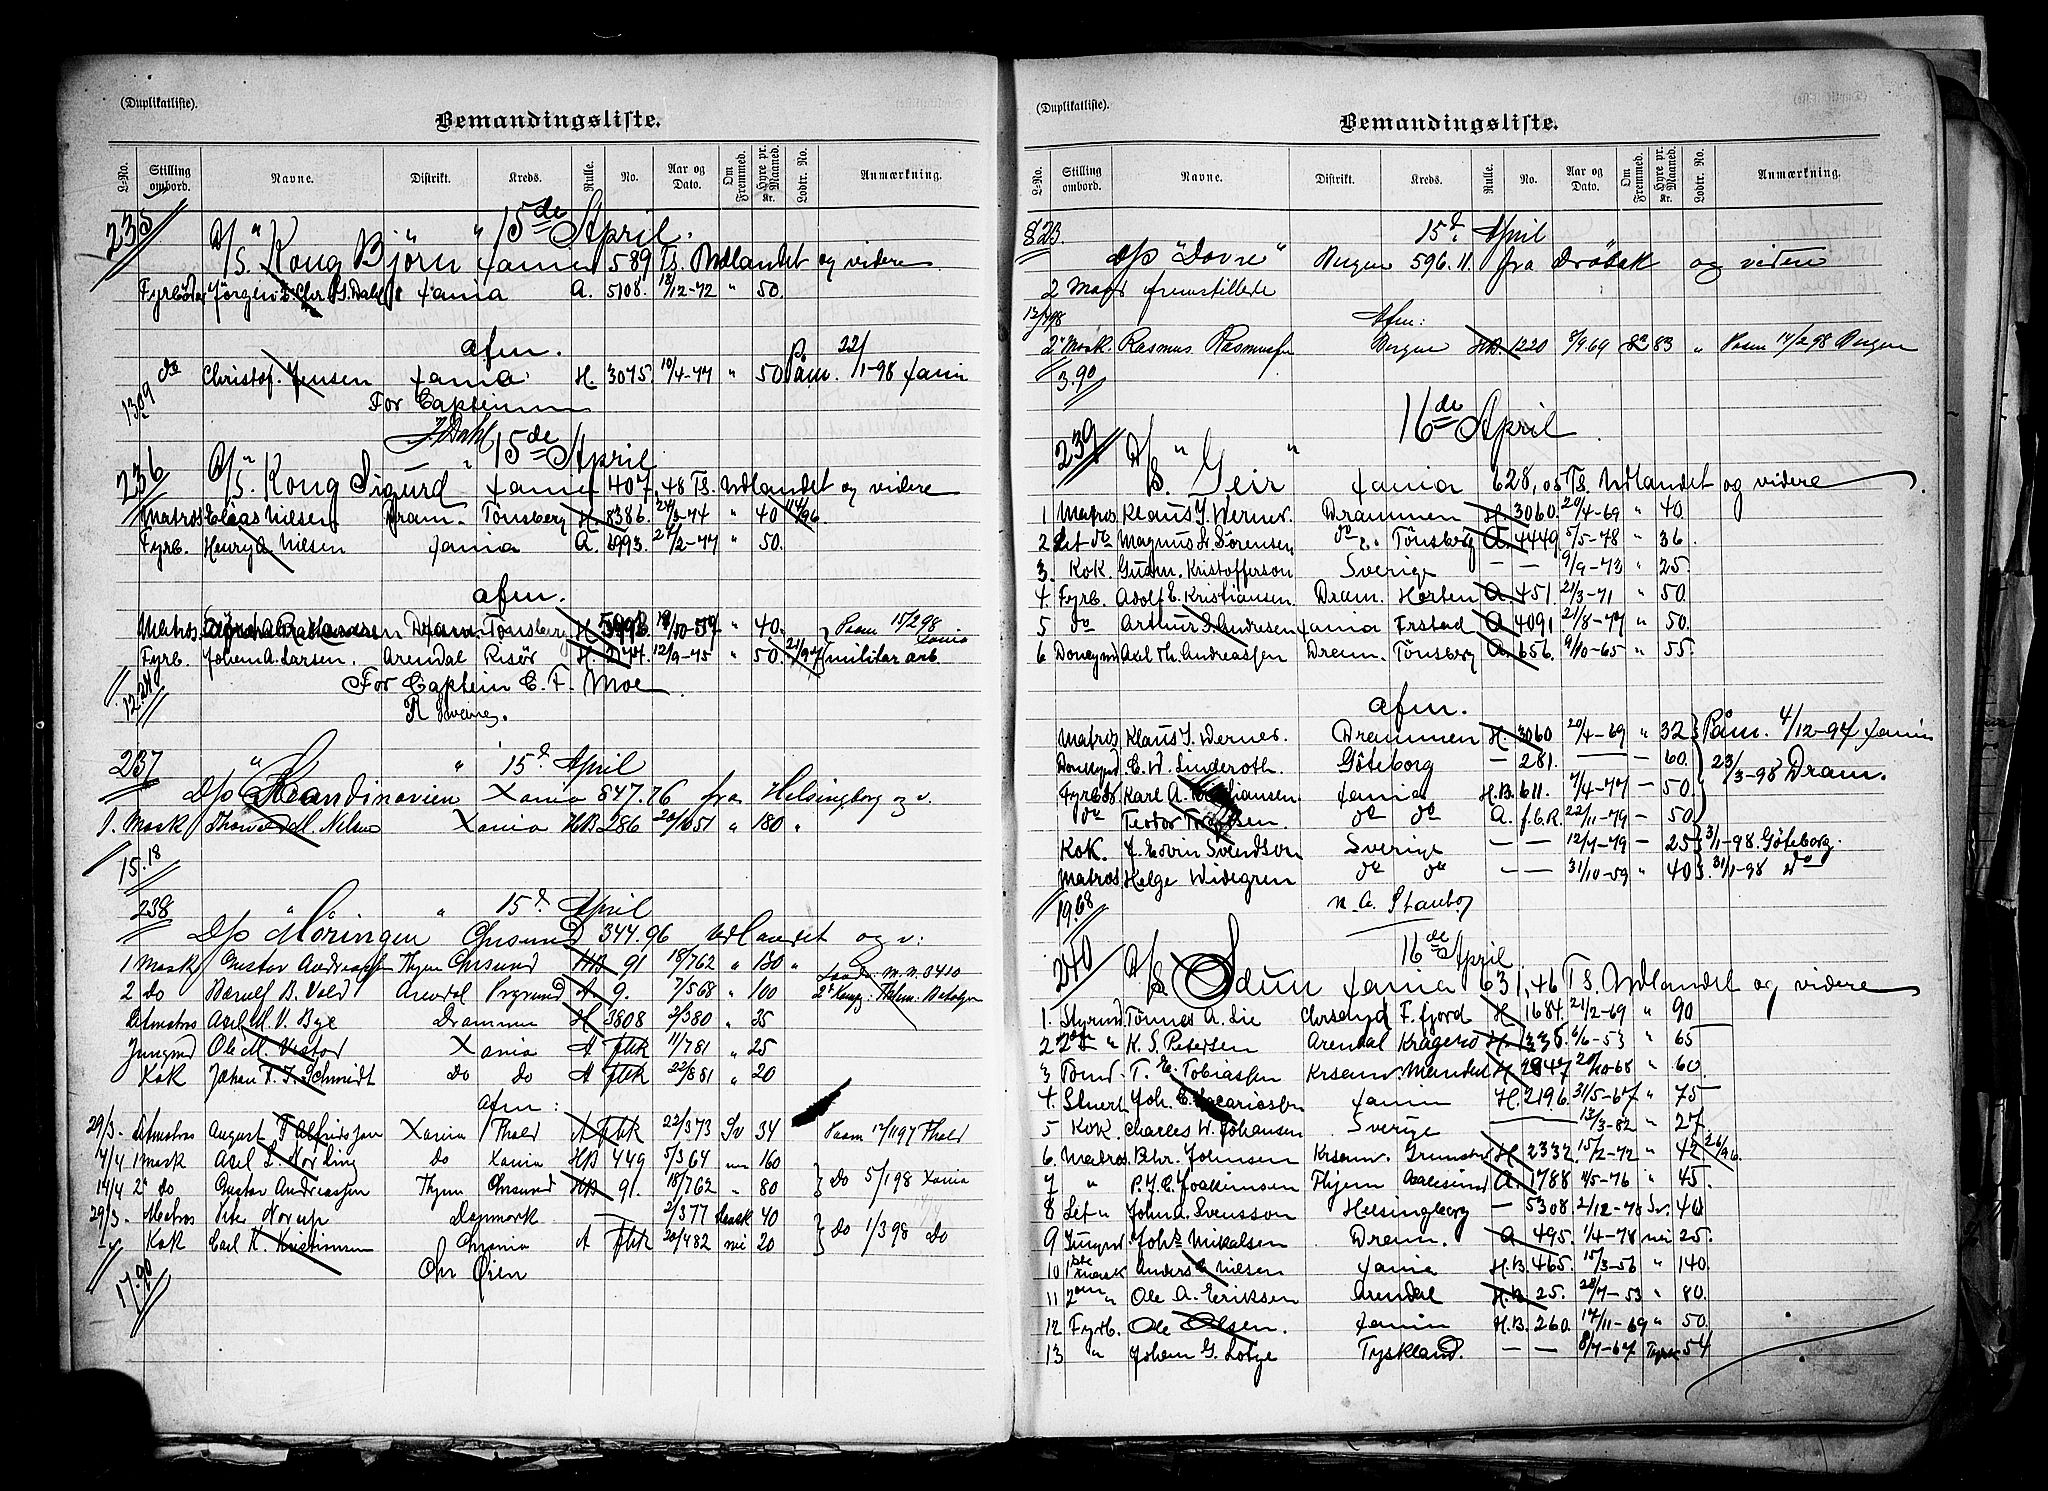 (Duplikatliste).
Bemandingsliste.
L-No. Stilling ombord. Navne. Distrikt. Kreds. Rulle. No. Aar og Dato. Om Fremmed. Hyre pr. Maaned. Kr. Lodtr. No. Anmærkning.
235 15de April.
D/S. "Kong Björn" Xania 589 Ts. Udlandet og videre
Fyrböder Jörgen Dahl Xania A. 5108. 12/12-72 " 50.
afm.
do Christof. Jensen Xania H. 3075. 10/4-77 " 50 Paam. 22/1-98 Xania
13.09 For Capteinen
J Dahl
236 15de April
D/S. "Kong Sigurd" Xania 407,48 Ts. Udlandet og videre
Matros Elias Nilsen Dram. Tönsberg H. 8386. 24/3-74 " 40 114/96
Fyrb. Henry A. Nilsen Xania A. 6993. 27/2-77 " 50.
afm.
Matros. Dram. Tönsberg H. " 40. Paam 15/2 98 Xania
Fyrb. Johan A. Larsen. Arendal Risör H. 12/9-75 " 50. 21/97 militær arb.
12.24 For Captein E. F. Moe
237 15d April
D/S "Skandinavien" Xania 847.76 fra Helsingborg og v.
1. Mask Thorvald M. Nilsen Xania HB 286 " 180 "
15.18
238 15d. April
D/S "Möringen" Chrsund 344.96 Udlandet og v:
1 Mask Gustav Andreassen Thjem Chrsund HB 91 18/7 62 " 130 "
2 do B. Vold Arendal A 9. 7/5 68 " 100
Letmatros Axel M. V. Bye Drammen H 3808 2/3 80 " 35
Jungmd Ole M. Vestad Xania A fbk 11/7 81 " 25
Kok Johan F. J. Schmidt Do Do A fbk 22/8 81 " 20
afm:
29/3. Letmatros August T Alfredsson Xania Fhald A fbk 22/3 73 Sv 34 Paam 12/11 97 Fhald
14/4 1 mask Axel L. Nording do Xania HB 449 5/3 64 160
14/4 2" do Gustav Andreassen Thjem Chrsund HB 91. 18/7 62 " 80 Do 5/1 98 Xania
29/3. Matros Peter Norup Danmark — 2/3 77 Dansk 40
" Kok Carl K. Kristiansen Chrania A fbk 20/4 82 nei 20 Do 1/3 98 Do
17.90 Chr Öien
(Duplikatliste).
Bemandingsliste.
L-No. Stilling ombord. Navne. Distrikt. Kreds. Rulle. No. Aar og Dato. Om Fremmed. Hyre pr. Maaned. Kr. Lodtr. No. Anmærkning.
823. 15d. April
D/S "Dovre" Bergen 596.11. fra Dröbak og videre
2 Mand fremstillede
Afm:
2" Mask. Rasmus Rasmussen Bergen HB. 1220 83 " Paam 14/2 98 Bergen
3.90
16de April
239
D/S. "Geir" Xania 628,05 Ts. Udlandet og videre
1 Matros Klaus J. Werner. Drammen H. 3060. 20/4-69 " 40.
2 Let do Magnus A. Sörensen do Tönsberg A. 4449 5/5-78 " 36
3. Kok. Gustav. Kristofferson Sverige — — 9/9-73 " 25.
4. Fyrb. Adolf E. Kristiansen. Dram. Horten A. 451. 21/3-71 " 50.
5 do Arthur S. Andresen Xania Frstad A. 4091. 21/8-77 " 50.
6 Donkymd Axel Th. Andreassen Dram. Tönsberg A. 656. 9/10-65 " 55.
afm.
Matros Klaus J. Werner. Drammen H. 3060 20/4-69 " 32 Paam. 4/12-97 Xania
Donkymd E. W. Linderoth. Göteborg — 281. — 60 23/3-98 Dram.
Fyrböd Karl A. Xania H.B. 611. 7/4-77 — 50
do Teodor do do A. f.b.R. 22/11-79 — 50
Kok. J. Edvin Svendson Sverige — — 12/7-79 — 25 3/1-98. Göteborg.
Matros Helge Widegren do do — — 31/10-59 " 40 31/1-98 do
19.68 N. A. Stenbog
240 16de April
D/S. Odun Xania 631,46 Ts. Udlandet og videre
1. Styrmd. Tönnes A. Lie Chrsand F. fjord H. 1684. 21/2-69 " 90
2 2den " K. S. Petersen Arendal Kragerö H. 6/6-53 " 65
3 Tömd. T. E. Tobiassen Krsand. Mandal H. 2947 20/10-68 " 60.
4. Stuert Joh. E. Xania H. 2196 31/5-67 " 75
5 Kok. Charles W. Johansen Sverige — 13/3-82 " 27.
6. Matros Bhr. Johnsen Krsand. Grimstad H. 2332. 15/2-72 " 42 26/96
7 " P. J. E. Joakimsen Thjem Aalesund A. 1788 " 45.
8 Let " John A. Svensson Helsingborg — 5308. 2/12-78 Sv. 40
9 Jungmd. Johs Mikalsen Dram. A 495. 1/4-78 nei 25.
10 1ste mask Anders C. Nilsen Xania H.B. 465. 15/3-56 " 140.
11 2den " Ole A. Eriksen Arendal H.B. 25. 28/7-53 " 80.
12 Fyrb. Ole Olsen. Xania H.B. 260. 17/11-69 " 50.
13 " Johan G. Lotze Tyskland. — — 8/7-67 Tysk 54